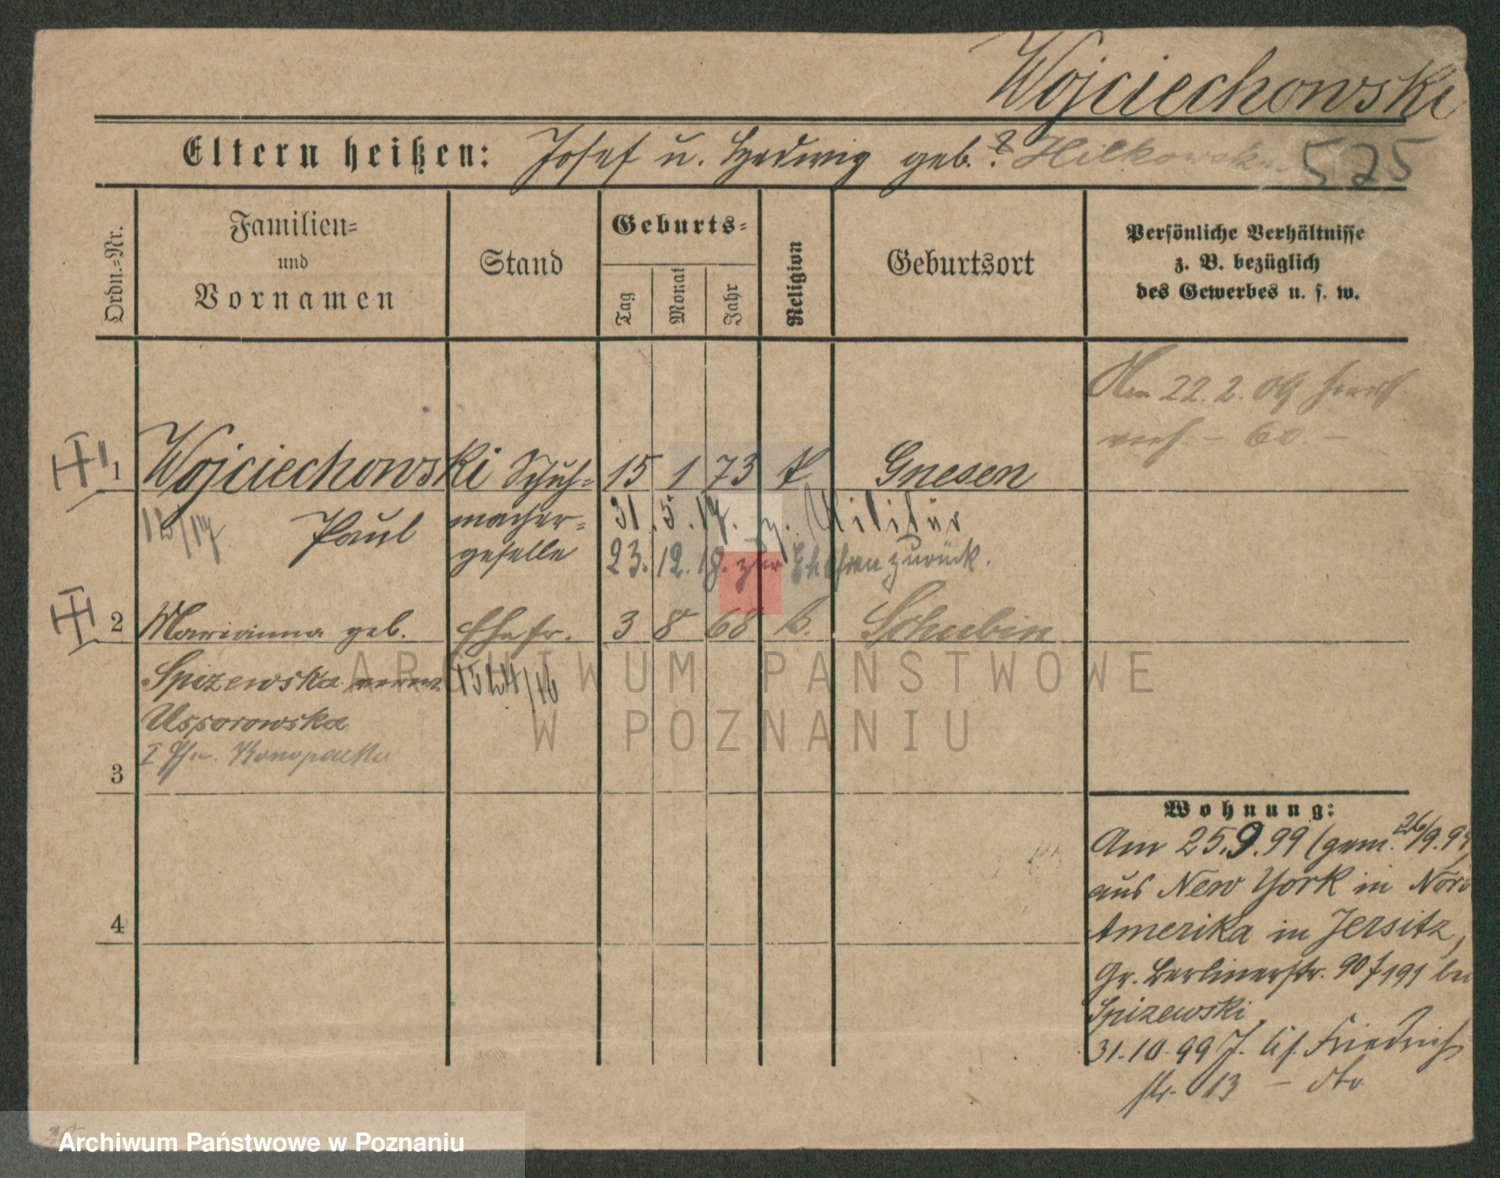 Wojciechowski
Eltern heißen: Josef u. Hedwig geb. ? Hilkowska 525
Ordn.-Nr.
Familien-
und
Vornamen
Stand
Geburts-
Tag
Monat
Jahr
Religion
Geburtsort
Persönliche Verhältnisse
z. B. bezüglich
des Gewerbes u. s. w.
Am 22.2.09
60.-
1 Wojciechowski Schuh- 15 1 73 k Gnesen
Paul macher- 31.5.17. z. Militär
geselle 23.12.18. zur Ehefrau zurück.
2 Marianna geb. Ehefr. 3 8 68 k. Schubin
Spizewska 1524/16
Ussorowska
I Konopacka
3
Wohnung:
Am 25.9.99 (gem. 26/9.99)
aus New York in Nord
Amerika in Jersitz,
Gr. Berlinerstr. 90/191 bei
Spizewski.
31.10.99 J. Friedrich
str. 13 - dto.
4
ARCHIWUM PAŃSTWOWE
W POZNANIU
Archiwum Państwowe w Poznaniu